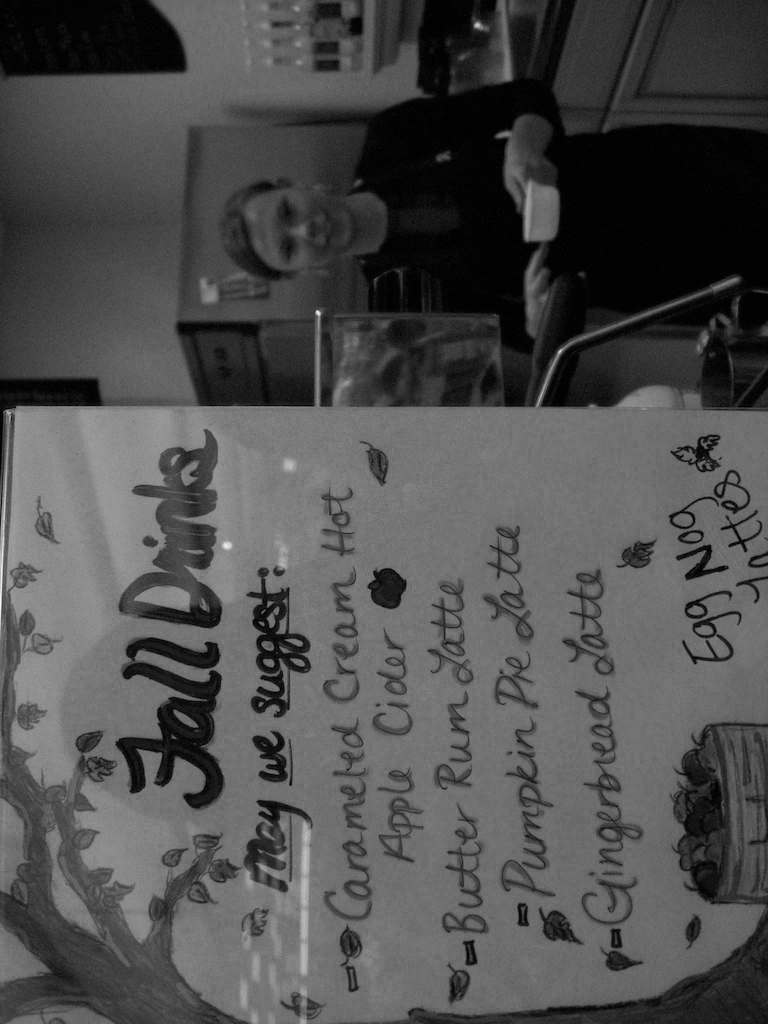 Fall Drinks
May we suggest:
- Carameled Cream Hot
Apple Cider
- Butter Rum Latte
- Pumpkin Pie Latte
- Gingerbread Latte
Egg Nog
Lattes